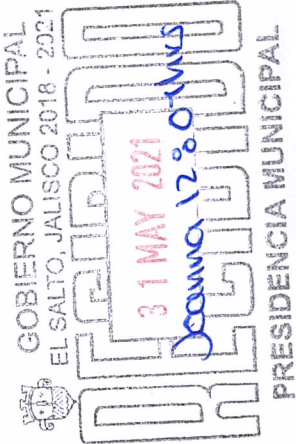 GOBIERNO MUNICIPAL
EL SALTO, JALISCO 2018 - 2021
RECIBIDO
3 1 MAY 2021
Joanna 12:07hrs
PRESIDENCIA MUNICIPAL